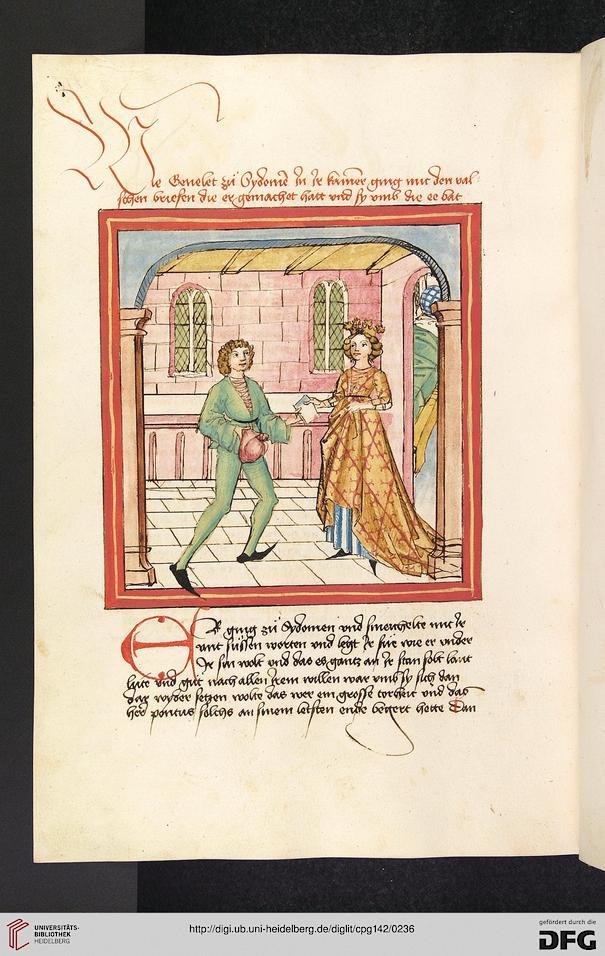 Wie Genelet zu Sydonie in ir kamer ging mit den val-
schen briefen die er gemachet hatt vnd sy vmb die ee bat
ER ging zu Sydonien vnd smeichelte mit ir
mit süssen worten vnd legt ir für wie er vnder
Ir sin wolt vnd das es gantz an ir stan solt lant
lüte vnd gůt nach allem irem willen war vmb sy sich dan
dar wyder setzen wolte das wer ein grosse torheit vnd das
her pontus solichs an sinem letsten ende begert hette Dan
UNIVERSITÄTS-
BIBLIOTHEK
HEIDELBERG
http://digi.ub.uni-heidelberg.de/diglit/cpg142/0236
gefördert durch die
DFG